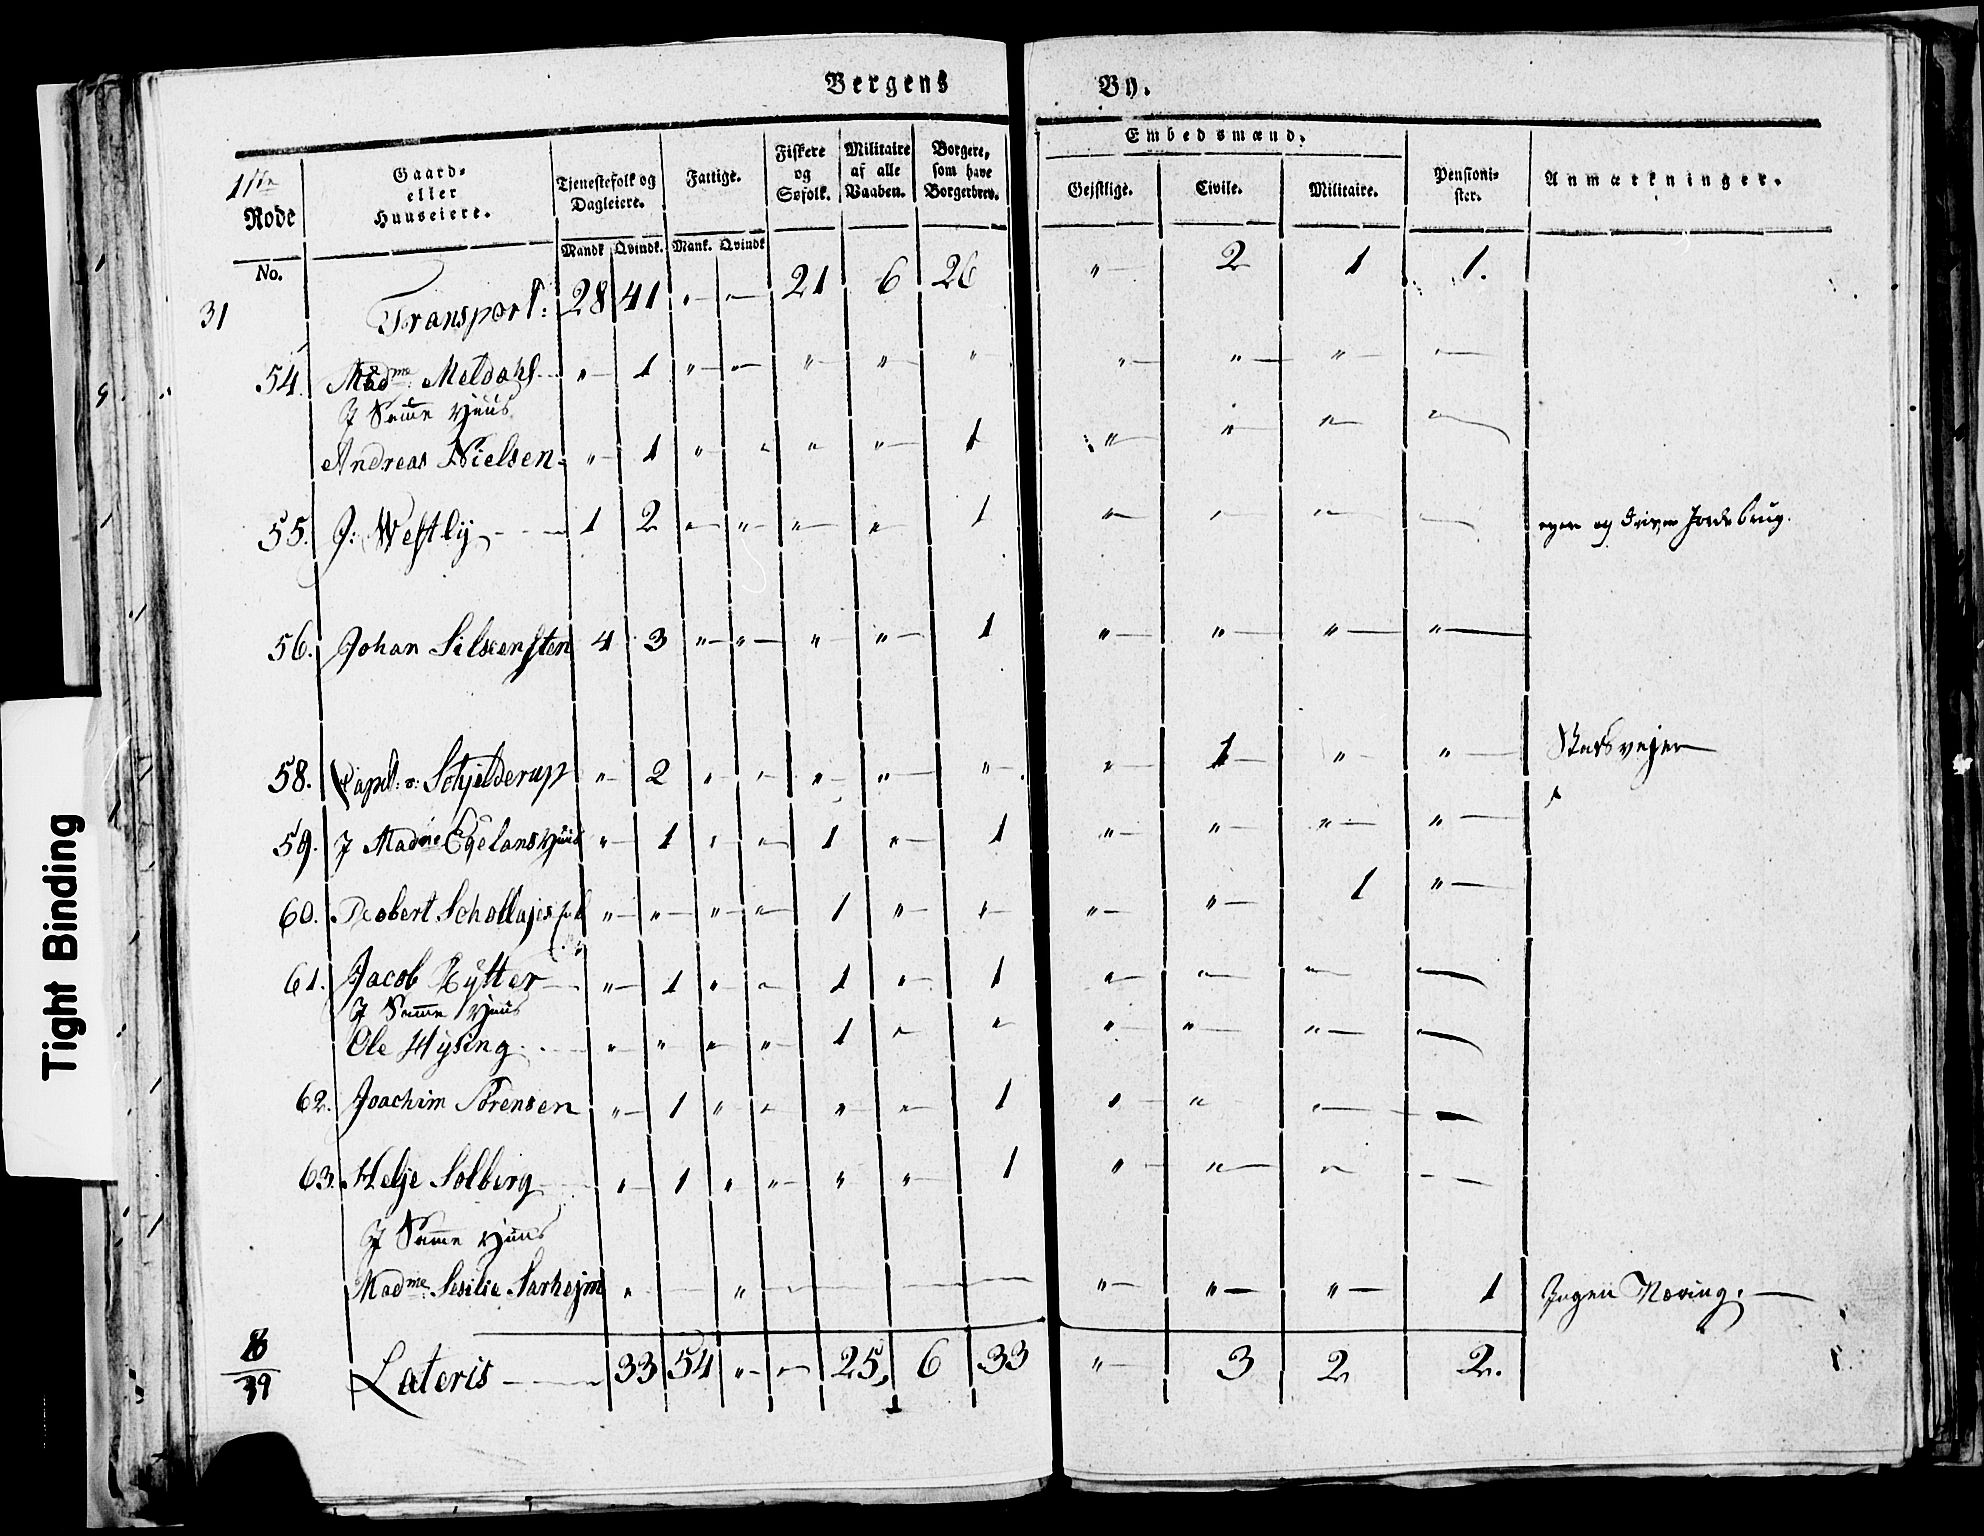 Bergens By.
11te Rode No. Gaard- eller Huuseiere. Tjenestefolk og Dagleiere. Mandk Qvindk. Fattige. Mank. Qvindk Fiskere og Søfolk. Militaire af alle Vaaben. Borgere, som have Borgerbrev. Embedsmænd. Gejstlige. Civile. Militaire. Pensionister. Anmærkninger.
31 Transport: 28 41 " " 21 6 26 " 2 1 1.
54. Madme Meldahl " 1 " " " " " " " " "
I Samme Huus
Andreas Nielsen " 1 " " " " 1 " " " "
55. J: Westlÿ 1 2 " " " " 1 " " " " eyer og driver Jordebrug.
56. Johan 4 3 " " " " 1 " " " "
58. Capt: v: Schjelderup " 2 " " " " " " 1 " " Stadsvejer
59. I Madme Egelans Huus " 1 " " 1 " 1 " " " "
60. Robert " " " " 1 " " " " 1 "
61. Jacob Rÿtter " 1 " " 1 " 1 " " " "
I Samme Huus
Ole Hÿsing " " " " 1 " " " " " "
62. Joachim Sørensen " 1 " " " " 1 " " " "
63. Helje Solberg " 1 " " " " 1 " " " "
I Samme Huus
Madme Sesilie Sarhejm " " " " " 1 Ingen Næring.
8
39
Lateris 33 54 " " 25, 6 33 " 3 2 2.
Tight Binding